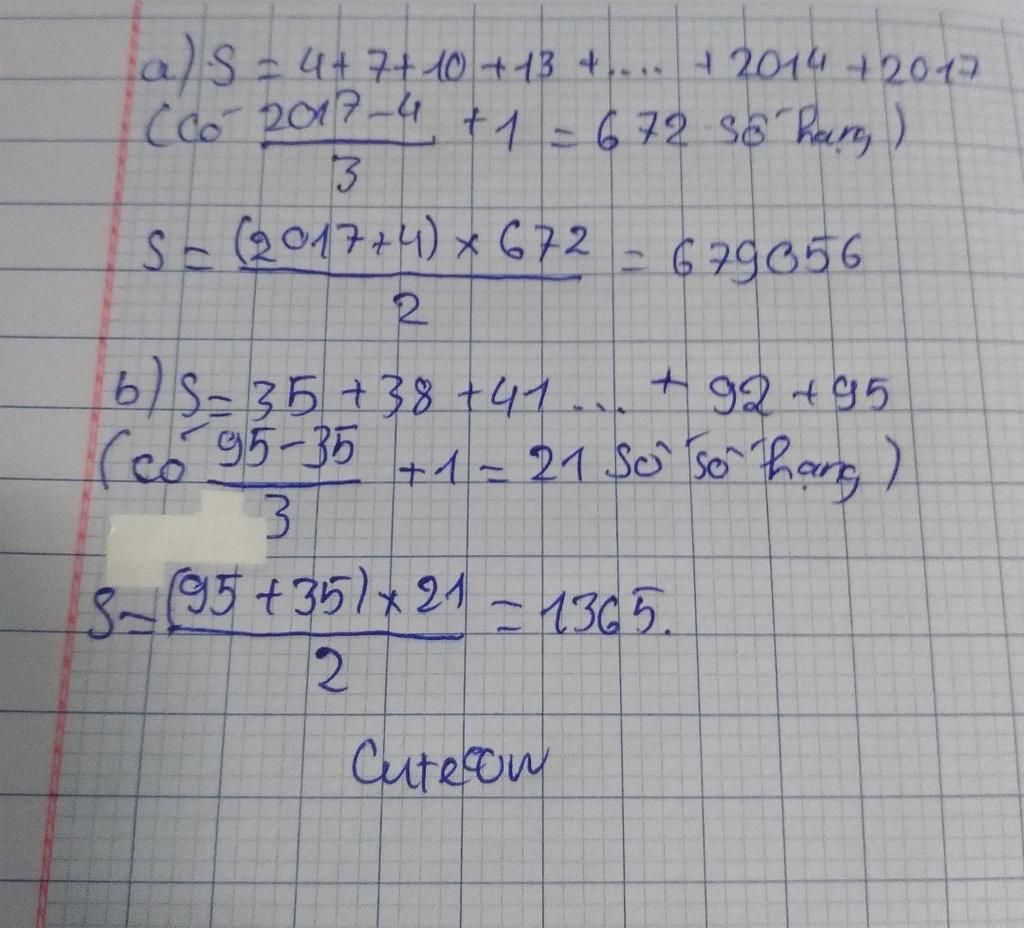 a) S = 4+7+10+13+.... +2014+2017
(có (2017-4)/3 +1 = 672 số hạng)
S = ((2017+4) × 672)/2 = 679056
b) S = 35 +38 +41 ... + 92 +95
(có (95-35)/3 +1 = 21 số số hạng)
S = ((95 +35) × 21)/2 = 1365.